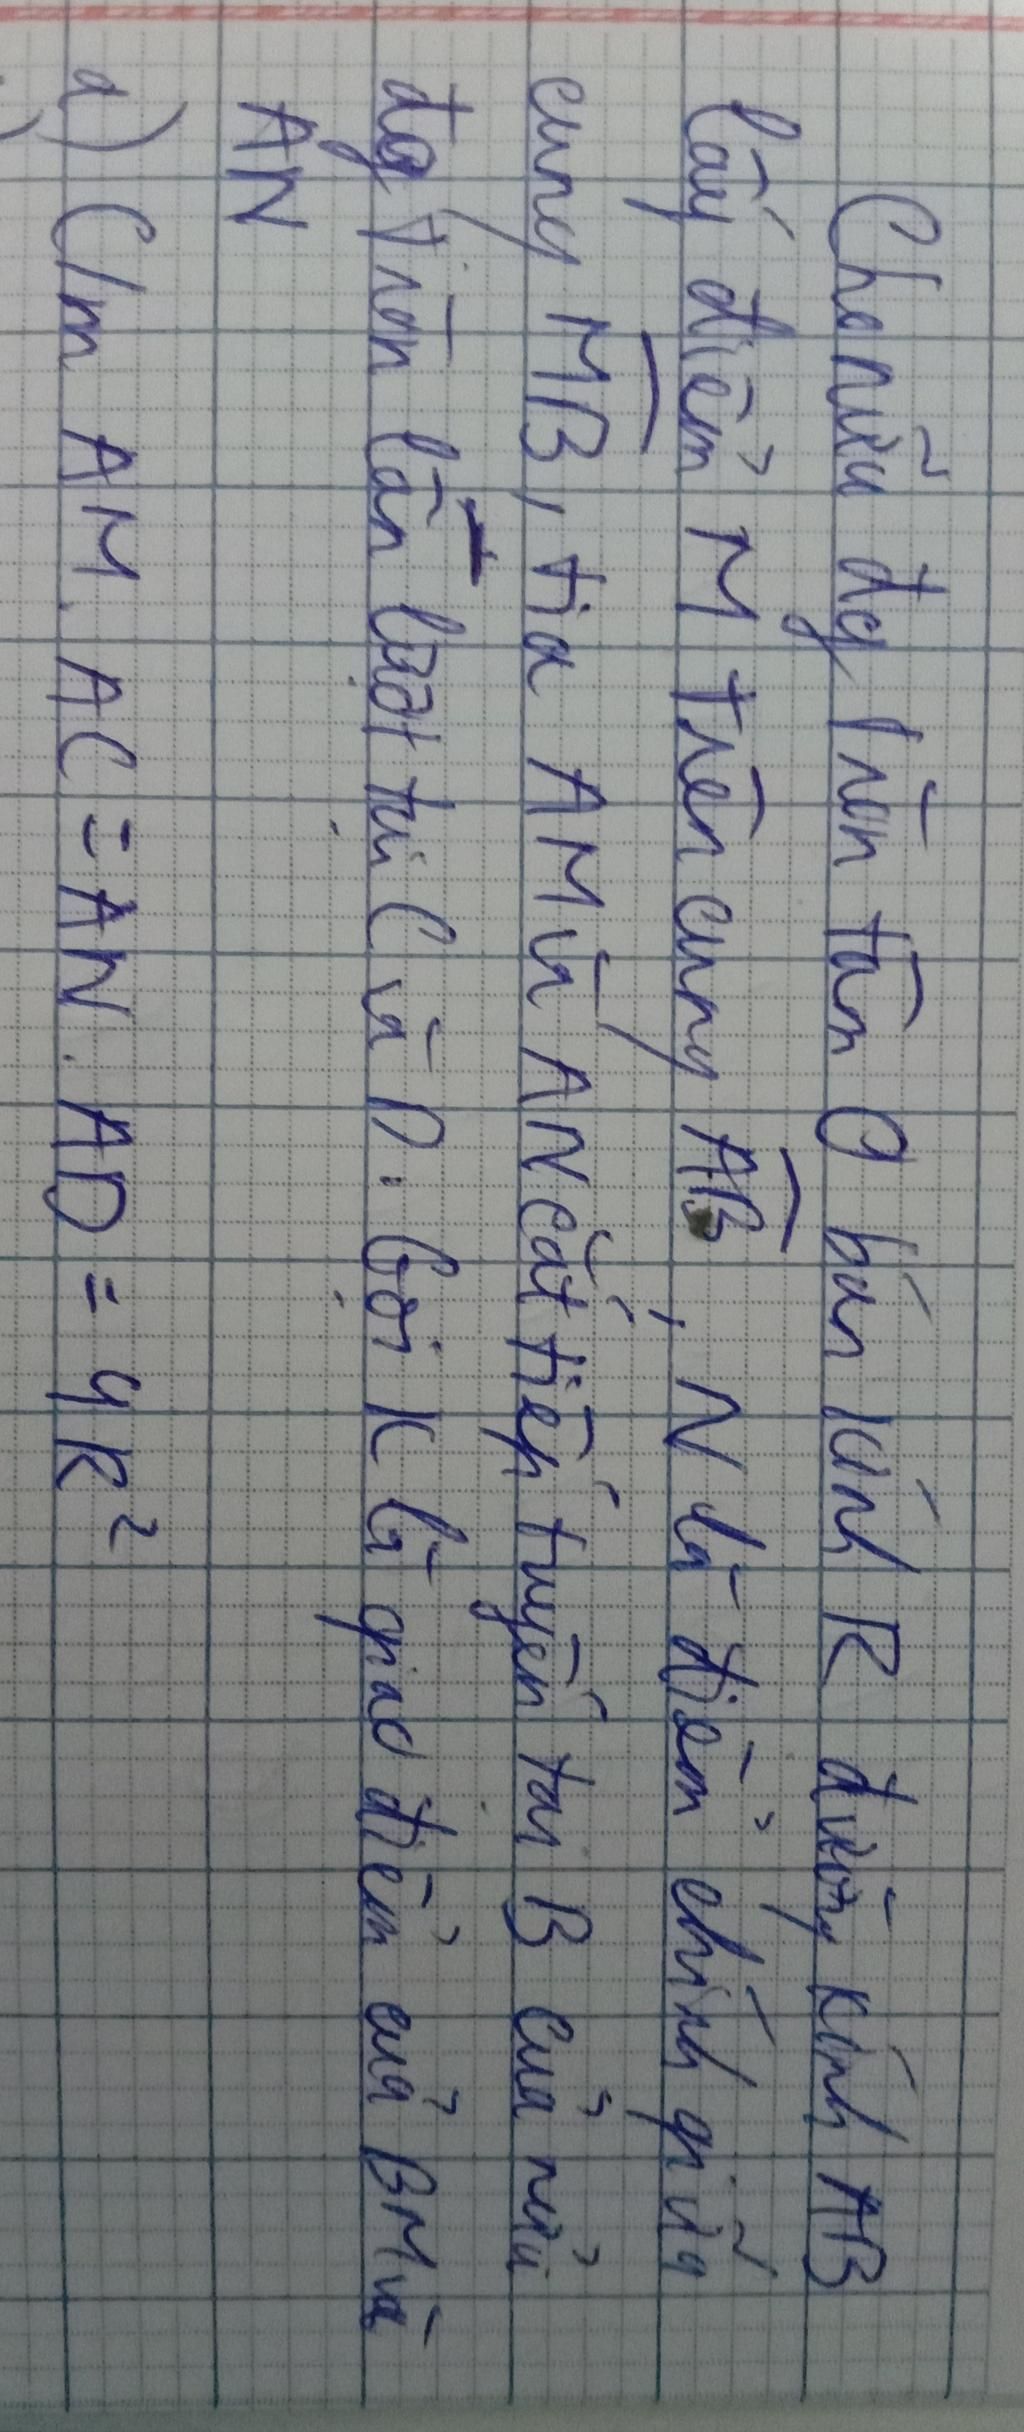 Cho nửa đg tròn tâm O bán kính R đường kính AB
lấy điểm M trên cung AB, N là điểm chính giữa
cung MB, tia AM và AN cắt tiếp tuyến tại B của nửa
đg tròn lần lượt tại C và D. Gọi K là giao điểm của BM và
AN
a) C/m AM. AC = AN. AD = 4R²